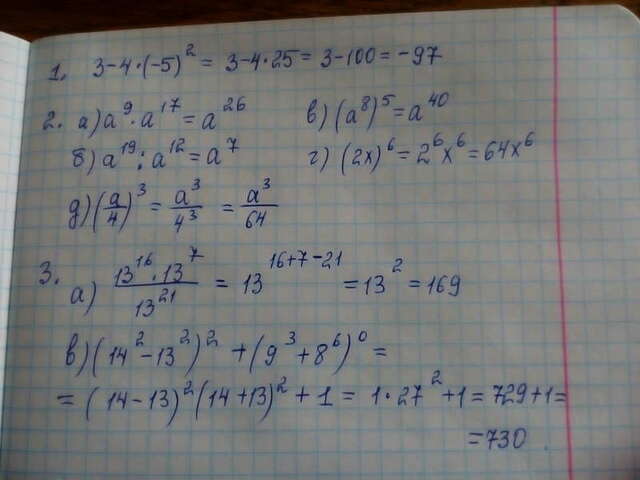 1. 3-4·(-5)² = 3-4·25 = 3-100 = -97
2. а) a⁹·a¹⁷ = a²⁶ в) (a⁸)⁵ = a⁴⁰
б) a¹⁹:a¹² = a⁷ г) (2x)⁶ = 2⁶x⁶ = 64x⁶
д) (a/4)³ = a³/4³ = a³/64
3. а) 13¹⁶·13⁷/13²¹ = 13¹⁶⁺⁷⁻²¹ = 13² = 169
в) (14²-13²)² + (9³+8⁶)⁰ =
= (14-13)²(14+13)² + 1 = 1·27²+1 = 729+1=
=730